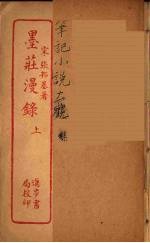 宋 張邦基著
墨莊漫錄 上
進步書
局校印
筆記小說大觀